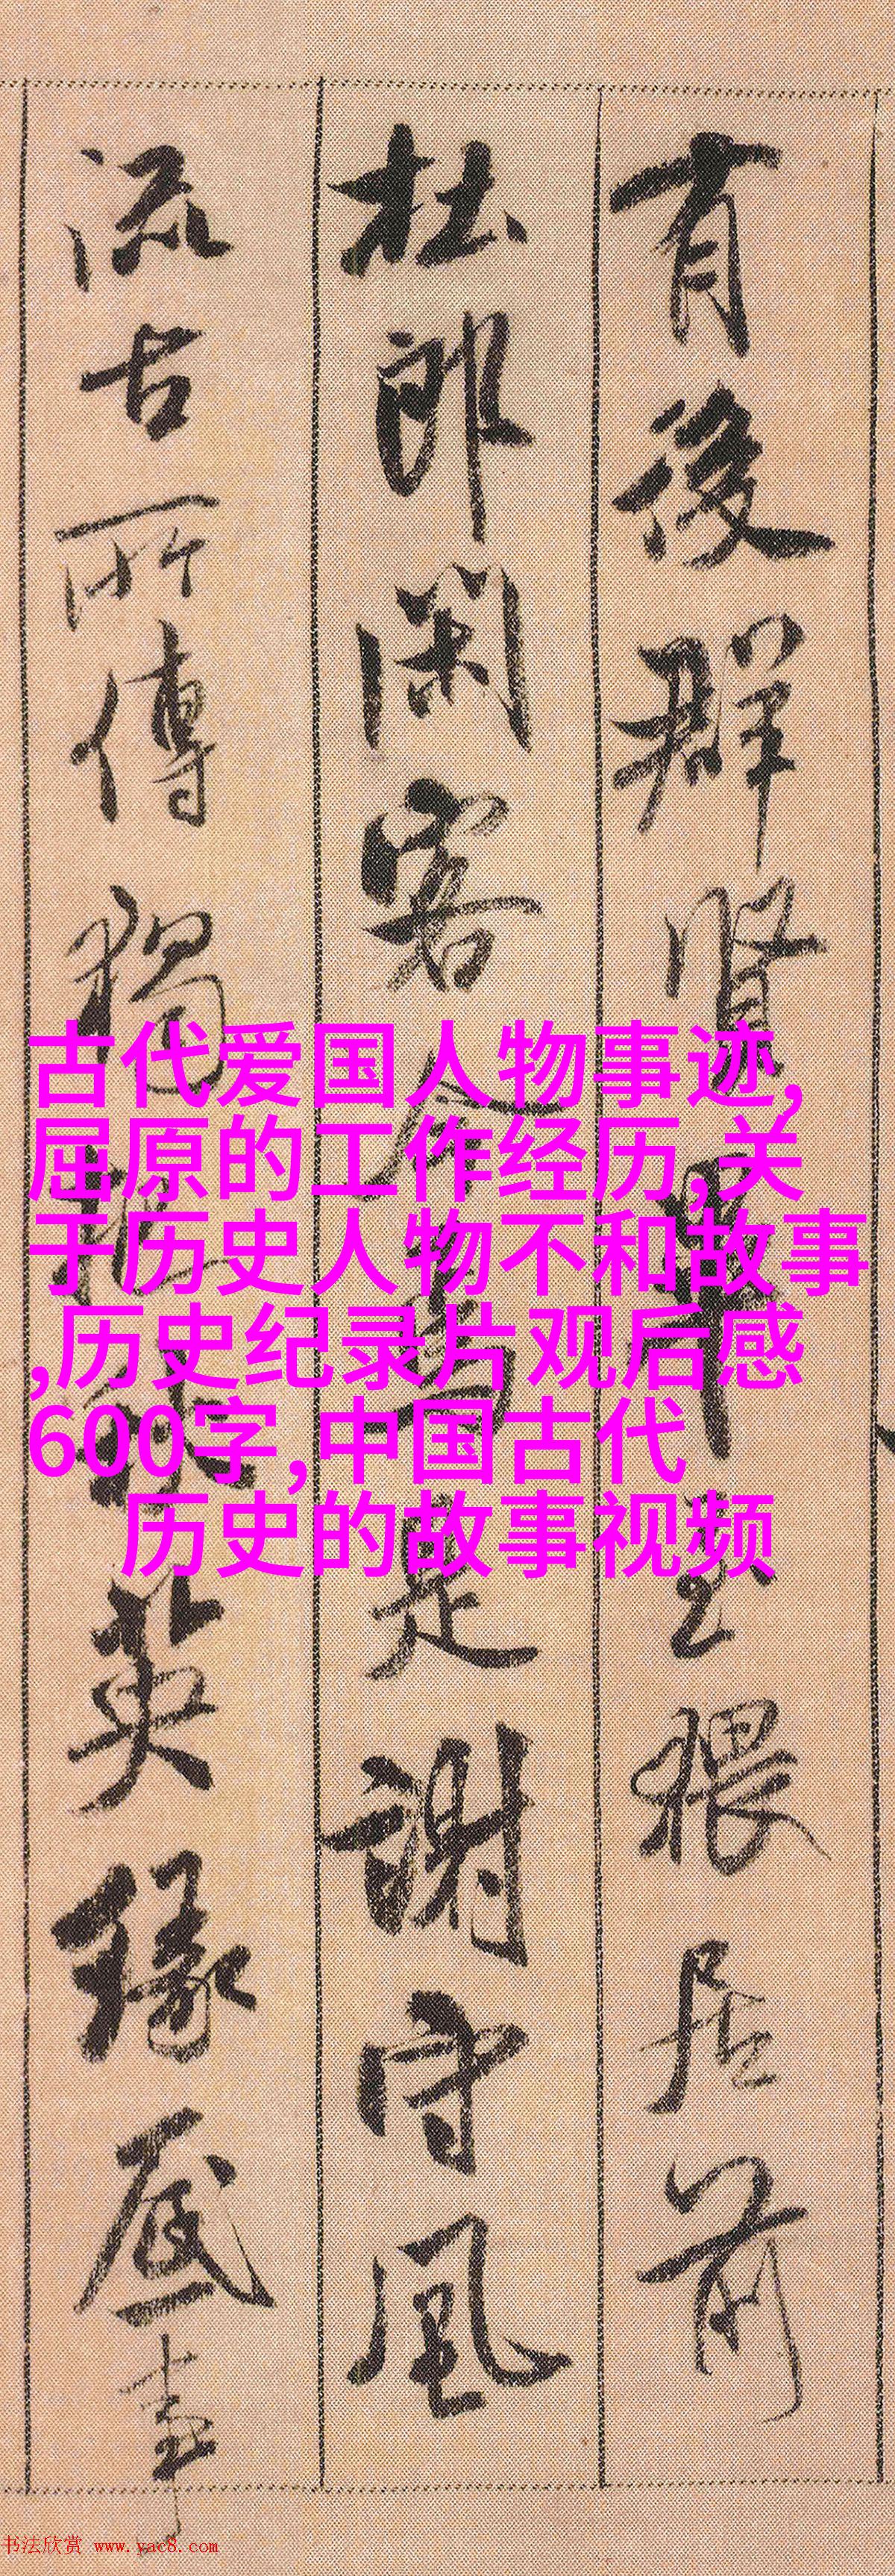 有後群賢畢至猥居前
杜郎閑客今焉是謝守風
流古所傳獨把秋英緣底事
古代爱国人物事迹,
屈原的工作经历,关
于历史人物不和故事
,历史纪录片观后感
600字,中国古代
历史的故事视频
书法欣赏 www.yac8.com